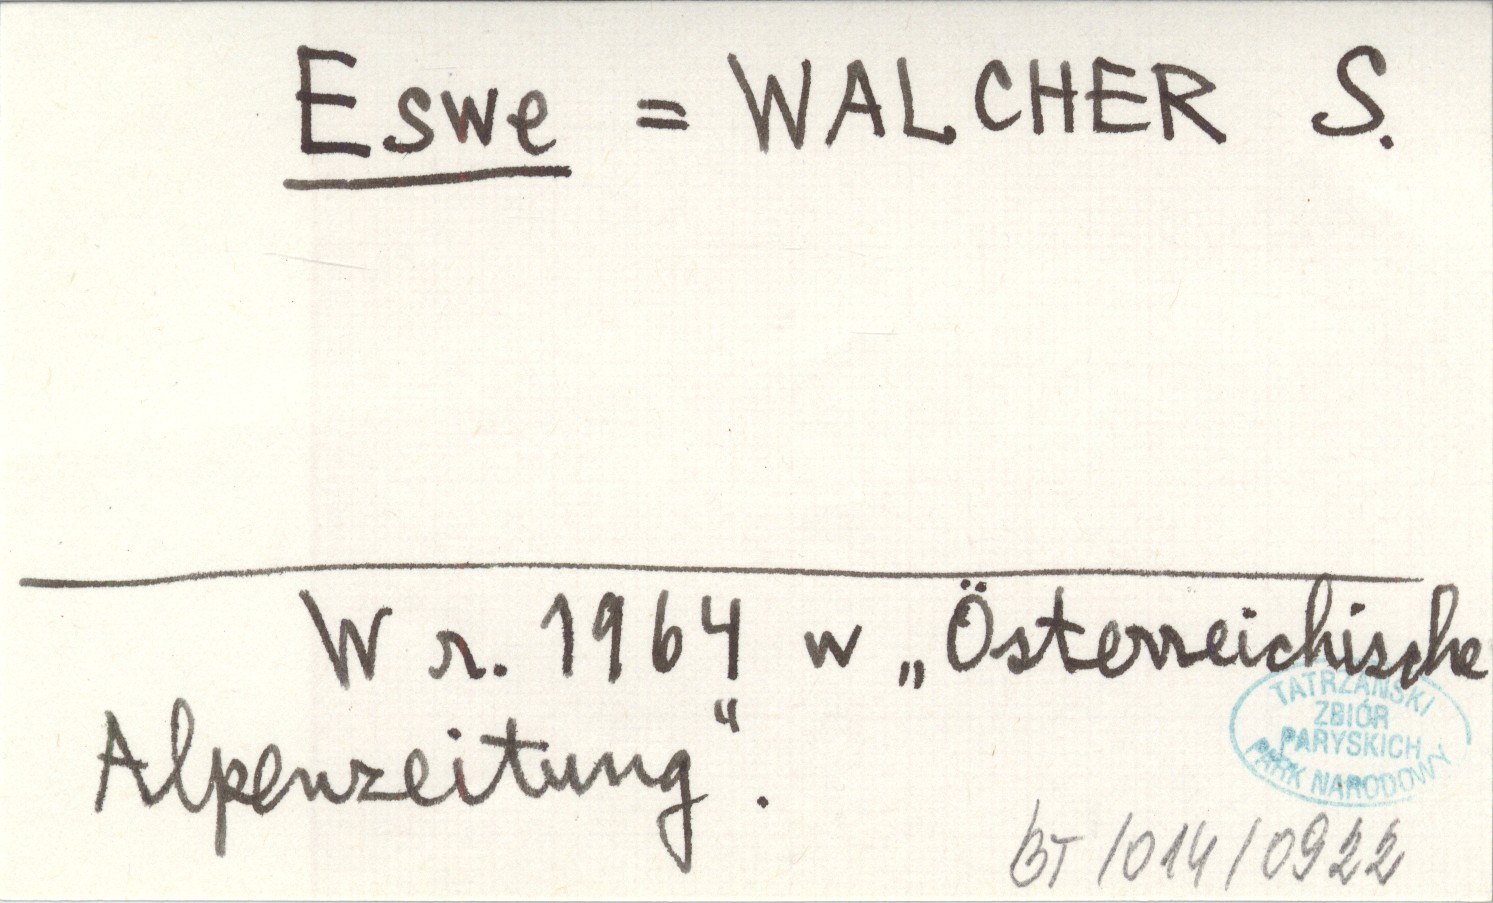 Eswe = WALCHER S.
W r. 1964 w „Österreichische
Alpenzeitung".
TATRZAŃSKI
ZBIÓR
PARYSKICH
PARK NARODOWY
BT/014/0922